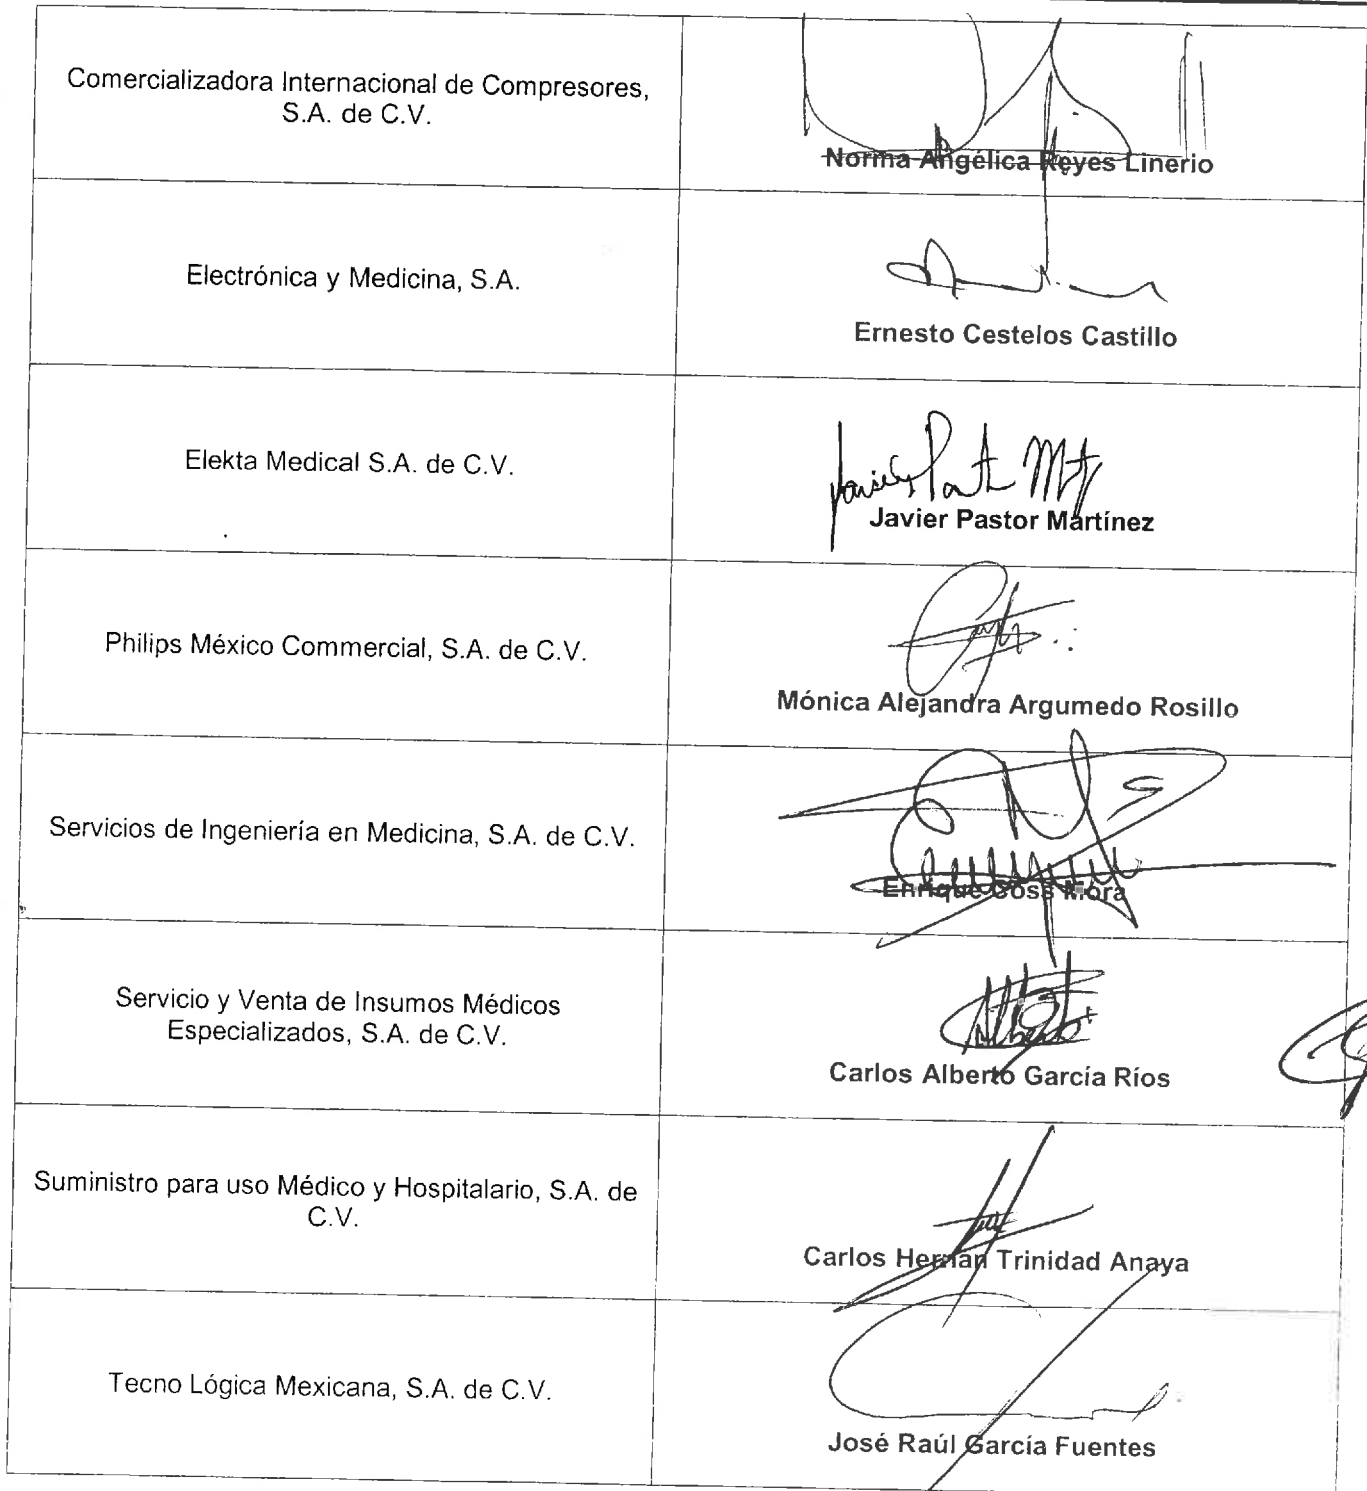 Comercializadora Internacional de Compresores,
S.A. de C.V.
Norma Angélica Reyes Linerio
Electrónica y Medicina, S.A.
Ernesto Cestelos Castillo
Elekta Medical S.A. de C.V.
Javier Pastor Mtz
Javier Pastor Martínez
Philips México Commercial, S.A. de C.V.
Mónica Alejandra Argumedo Rosillo
Servicios de Ingeniería en Medicina, S.A. de C.V.
Enrique Coss Mora
Servicio y Venta de Insumos Médicos
Especializados, S.A. de C.V.
Alberto
Carlos Alberto García Ríos
Suministro para uso Médico y Hospitalario, S.A. de
C.V.
Carlos Hernán Trinidad Anaya
Tecno Lógica Mexicana, S.A. de C.V.
José Raúl García Fuentes